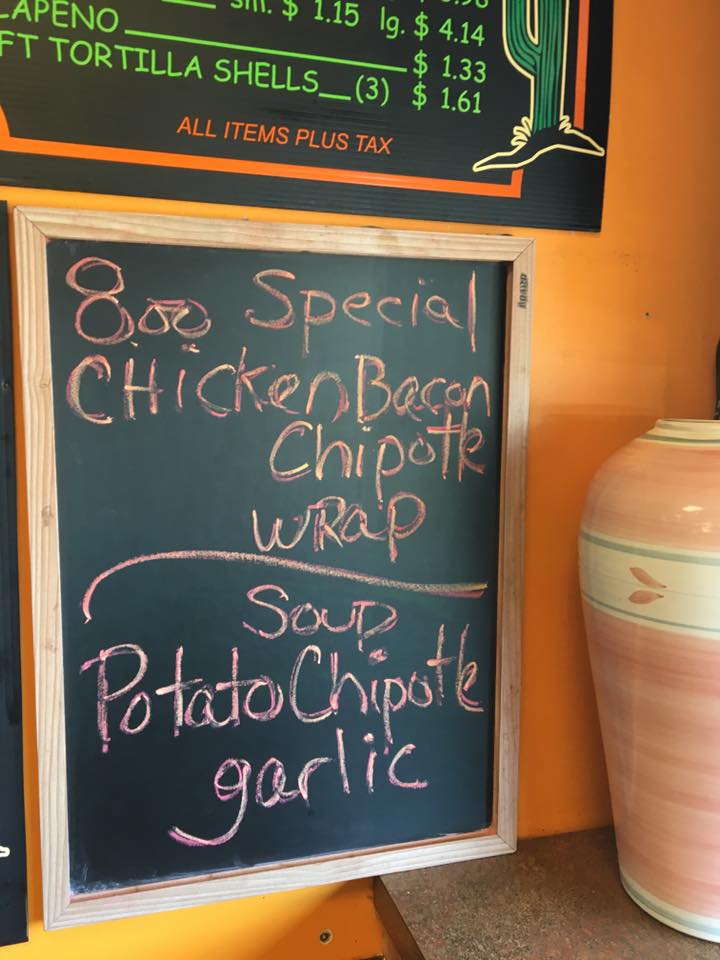 sm. $ 1.15 lg. $ 4.14
$ 1.33
TORTILLA SHELLS__(3) $ 1.61
ALL ITEMS PLUS TAX
8.00 Special
CHicken Bacon
Chipotle
WRAP
Soup
Potato Chipotle
garlic